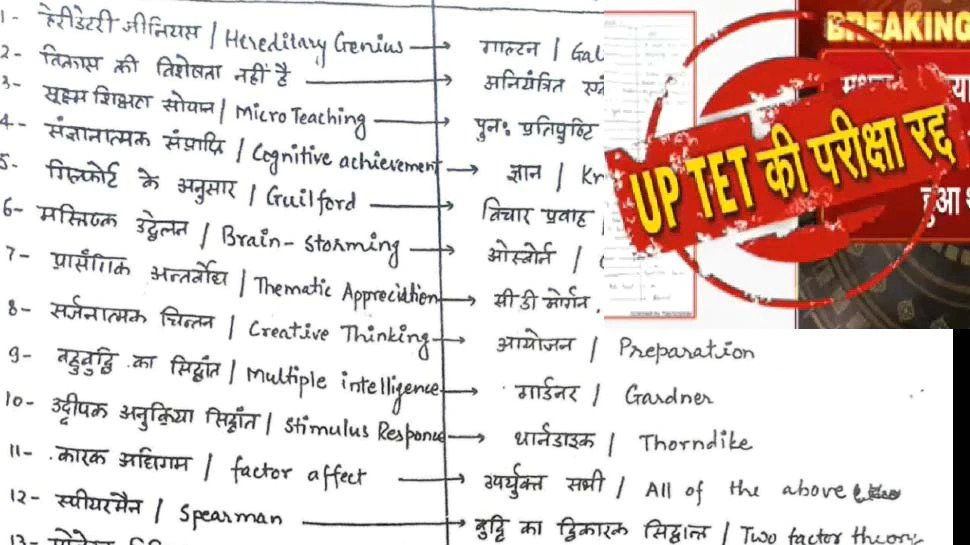 1- हेरीडेटरी जीनियस / Hereditary Genius → गाल्टन / Gal
2- विकास की विशेषता नहीं है → अनियंत्रित
3- सूक्ष्म शिक्षण सोपान / Micro Teaching → पुनः प्रतिपुष्टि
4- संज्ञानात्मक संप्राप्ति / Cognitive achievement → ज्ञान / Kn
5- गिलफोर्ट के अनुसार / Guilford → विचार प्रवाह /
6- मस्तिष्क उद्वेलन / Brain-storming → ओस्बोर्न /
7- प्रासंगिक अन्तर्बोध / Thematic Appreciation → सी डी मोर्गन
8- सर्जनात्मक चिन्तन / Creative Thinking → आयोजन / Preparation
9- बहुबुद्धि का सिद्धांत / Multiple intelligence → गार्डनर / Gardner
10- उद्दीपक अनुक्रिया सिद्धांत / Stimulus Responce → थार्नडाइक / Thorndike
11- कारक अधिगम / factor affect → उपर्युक्त सभी / All of the above
12- स्पीयरमैन / Spearman → बुद्धि का द्विकारक सिद्धान्त / Two factor theory
13-
BREAKING
UP TET की परीक्षा रद्द
हुआ